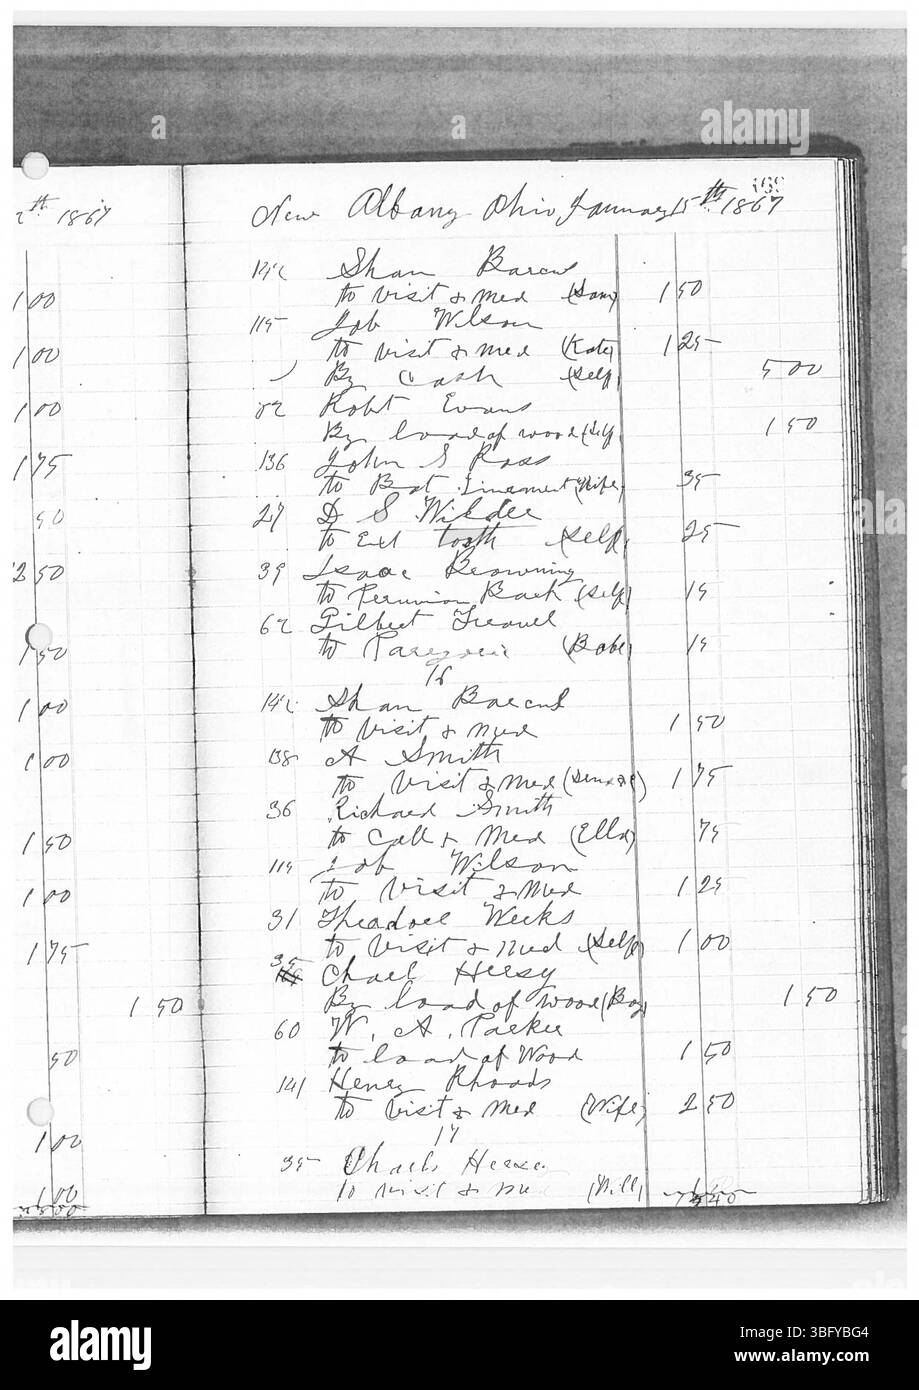 2th 1867
1 00
1 00
1 00
1 75
50
2 50
1 50
1 00
1 00
1 50
1 00
1 75
1 50
50
1 00
1 00
169
New Albany Ohio January 15th 1867
142 Sham Barcus
to visit & med (Sam) 1 50
115 Job Wilson
to visit & med (Kate) 1 25
By Cash (Self) 5 00
82 Robt Evans
By load of wood (Self) 1 50
136 John S Ross
to Bot Linement (Wife) 35
27 D S Wilder
to Ext tooth (Self) 25
39 Isaac Browning
to Peruvian Bark (Self) 15
62 Gilbert
to Paregoric (Babe) 15
16
142 Sham Barcus
to visit & med 1 50
138 A Smith
to visit & med 1 75
36 Richard Smith
to Call & Med (Ella) 75
115 Job Wilson
to visit & Med 1 25
31 Theadore Weeks
to visit & Med (Self) 1 00
35 Charls Heesy
By load of wood (Boy) 1 50
60 W. A. Parker
to load of Wood 1 50
141 Henry Rhoads
to visit & med (Wife) 2 50
17
35 Charls
to visit & med (Will)
a
a
alamy
alamy
Image ID: 3BFYBG4
www.alamy.com